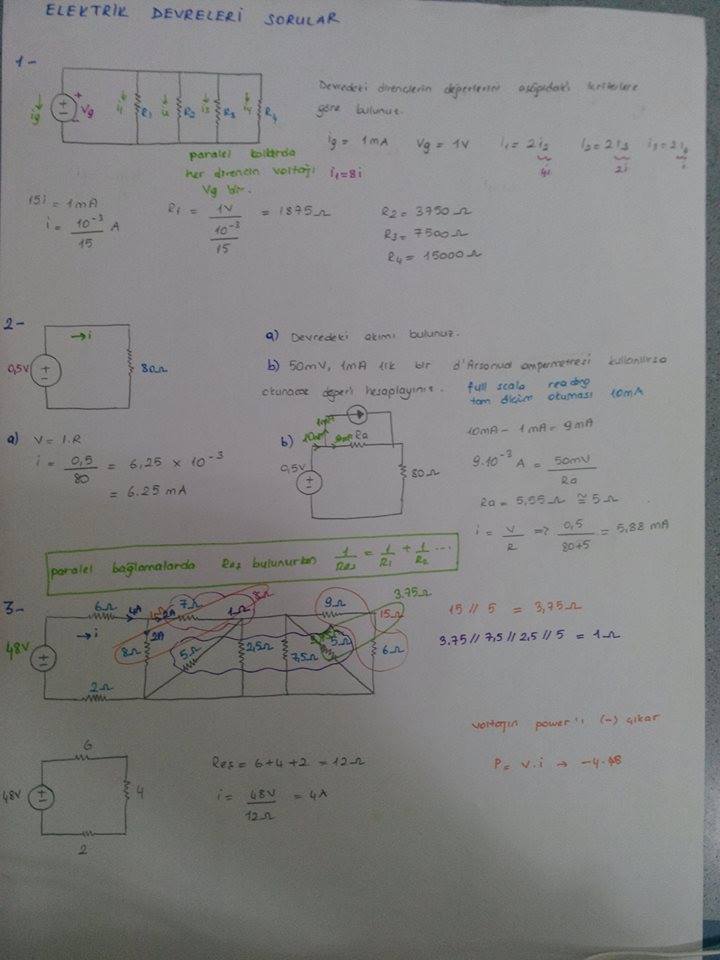 ELEKTRİK DEVRELERİ SORULAR
1-
ig
Vg
i1 R1 R2 i3 R3 R4
Devredeki dirençlerin değerlerini aşağıdaki kriterlere
göre bulunuz.
ig = 1mA Vg = 1V i1 = 2i2 i2 = 2i3 i3 = 2i4
4i 2i i
paralel kollarda
her direncin voltajı i1=8i
Vg dir.
15i = 1mA
i = 10⁻³ / 15 A
R1 = 1V / (10⁻³ / 15) = 1875Ω
R2 = 3750Ω
R3 = 7500Ω
R4 = 15000Ω
2-
→i
0,5V
80Ω
a) Devredeki akımı bulunuz.
b) 50mV, 1mA lik bir d'Arsonval ampermetresi kullanılırsa
okunacak değeri hesaplayınız.
full scala reading
tam ölçüm okuması 10mA
a) V = I.R
i = 0,5 / 80 = 6,25 × 10⁻³
= 6.25 mA
b)
1mA
10mA 9mA Ra
0,5V
80Ω
10mA - 1mA = 9mA
9.10⁻³ A = 50mV / Ra
Ra = 5,55Ω ≅ 5Ω
i = V / R => 0,5 / 80+5 = 5,88 mA
paralel bağlamalarda Reş bulunurken 1/Reş = 1/R1 + 1/R2 ...
3-
6Ω 4A 2A 7Ω 1Ω 8Ω 9Ω 3.75Ω
→i 2A 15Ω
48V 8Ω 5Ω 2,5Ω 7,5Ω 5Ω 6Ω
2Ω
15 // 5 = 3,75Ω
3.75 // 7,5 // 2,5 // 5 = 1Ω
voltajın power'ı (-) çıkar
P = V.i → -4.48
6
48V
4
2
Reş = 6+4+2 = 12Ω
i = 48V / 12Ω = 4A